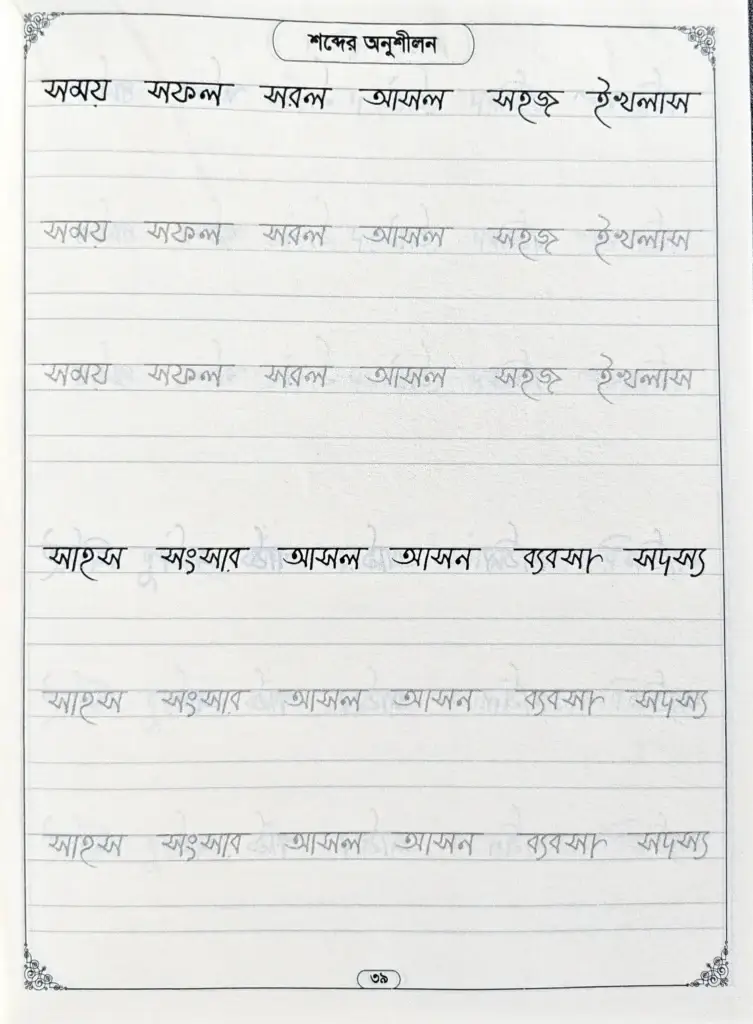 শব্দের অনুশীলন
সময় সফল সরল আসল সহজ ইখলাস
সময় সফল সরল আসল সহজ ইখলাস
সময় সফল সরল আসল সহজ ইখলাস
সাহস সংসার আসল আসন ব্যবসা সদস্য
সাহস সংসার আসল আসন ব্যবসা সদস্য
সাহস সংসার আসল আসন ব্যবসা সদস্য
৩৯